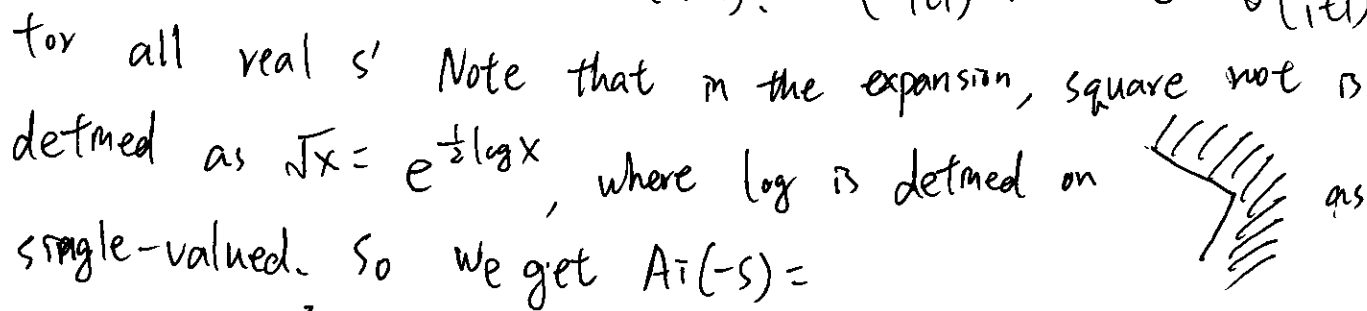 for all real s' Note that in the expansion, square root is
defined as √x = e^{½ log x}, where log is defined on as
single-valued. So we get Ai(-s) =